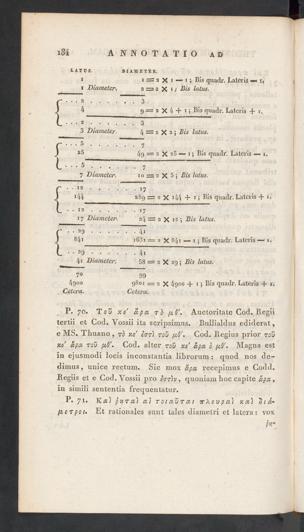 184 ANNOTATIO AD
LATUS. DIAMETER.
1 1 = 2 × 1 — 1; Bis quadr. Lateris — 1.
1 Diameter. 2 = 2 × 1; Bis latus.
. . 2 . . . . . . . . 3
4 9 = 2 × 4 + 1; Bis quadr. Lateris + 1.
. . 2 . . . . . . . . 3
3 Diameter. 4 = 2 × 2; Bis latus.
. . 5 . . . . . . . . 7
25 49 = 2 × 25 — 1; Bis quadr. Lateris — 1.
. . 5 . . . . . . . . 7
7 Diameter. 10 = 2 × 5; Bis latus.
. . 12 . . . . . . . . 17
144 289 = 2 × 144 + 1; Bis quadr. Lateris + 1.
. . 12 . . . . . . . . 17
17 Diameter. 24 = 2 × 12; Bis latus.
. . 29 . . . . . . . . 41
841 1681 = 2 × 841 — 1; Bis quadr. Lateris — 1.
. . 29 . . . . . . . . 41
41 Diameter. 58 = 2 × 29; Bis latus.
70 99
4900 9801 = 2 × 4900 + 1; Bis quadr. Lateris + 1.
Cetera. Cetera.
P. 70. Τοῦ κε' ἄρα τὸ μθ'. Auctoritate Cod. Regii
tertii et Cod. Vossii ita scripsimus. Bullialdus ediderat,
e MS. Thuano, τὸ κε' ἐστὶ τοῦ μθ'. Cod. Regius prior τοῦ
κε' ἄρα τοῦ μθ'. Cod. alter τοῦ κε' ἄρα ὁ μθ'. Magna est
in ejusmodi locis inconstantia librorum: quod nos de-
dimus, unice rectum. Sic mox ἄρα recepimus e Codd.
Regiis et e Cod. Vossii pro ἐστὶν, quoniam hoc capite ἄρα,
in simili sententia frequentatur.
P. 71. Καὶ ῥηταὶ αἱ τοιαῦται πλευραὶ καὶ διά-
μετροι. Et rationales sunt tales diametri et latera: vox